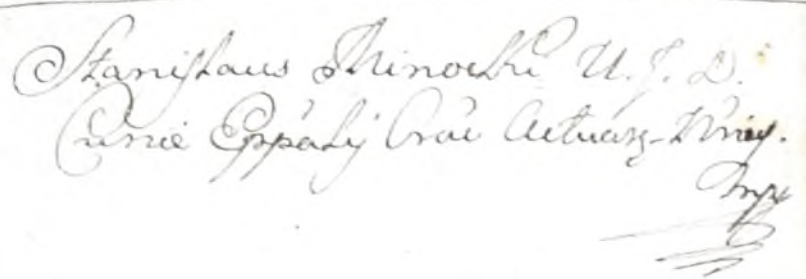 Stanislaus Minocki U. J. D.
Curiæ Eppalij Crac Actuarz-
mpr